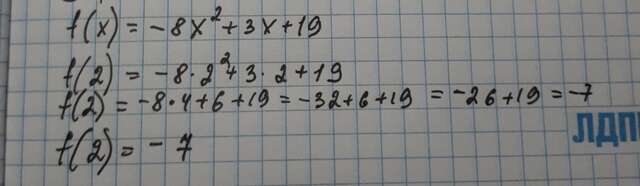 f(x) = -8x² + 3x + 19
f(2) = -8·2² + 3·2 + 19
f(2) = -8·4 + 6 + 19 = -32 + 6 + 19 = -26 + 19 = -7
ЛДП
f(2) = -7